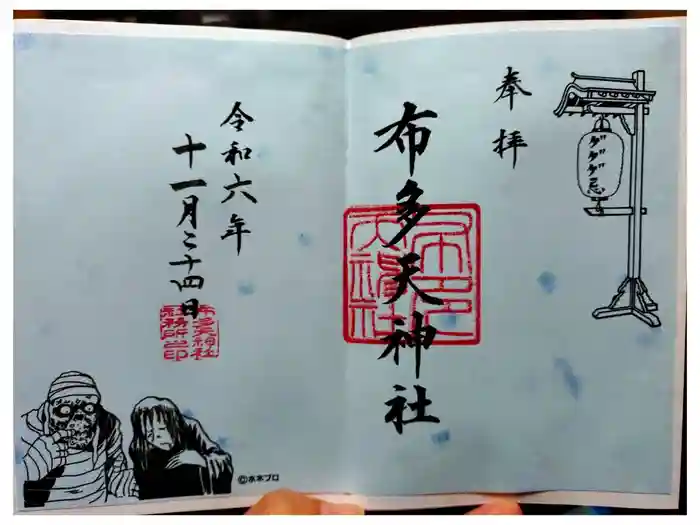 奉拝
ゲゲゲ忌
布多天神社
令和六年
十一月二十四日
布多天神社
社務所之印
©水木プロ